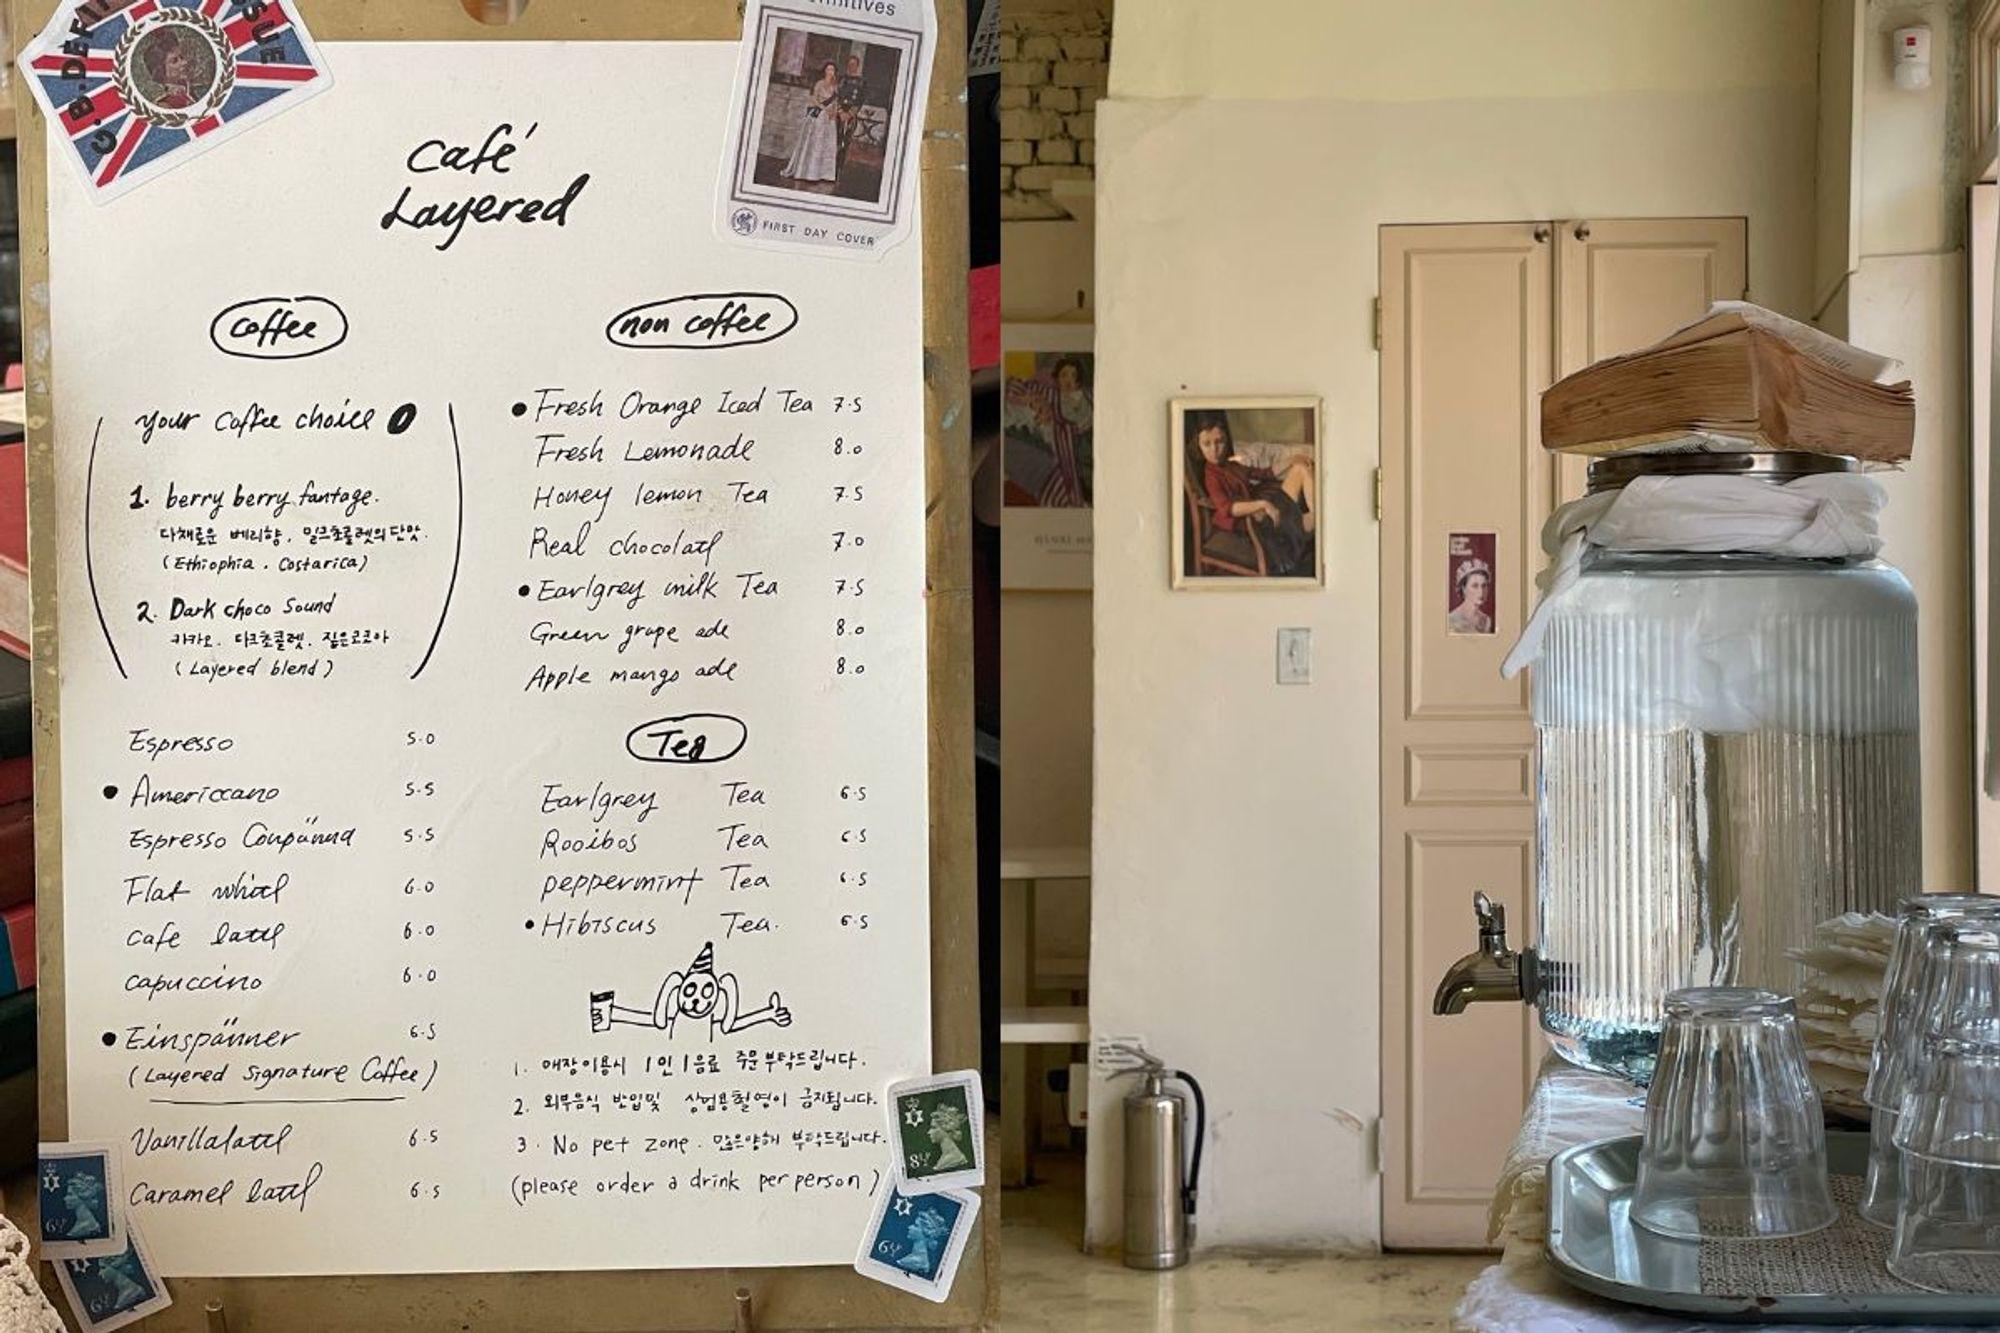 G.B. DEFINITIVE ISSUE
FIRST DAY COVER
Café
Layered
coffee
your coffee choice
1. berry berry fantage.
다채로운 베리향, 밀크초콜렛의 단맛.
(Ethiophia . Costarica)
2. Dark choco Sound
카카오, 다크초콜렛, 짙은코코아
(Layered blend)
Espresso 5.0
• Americcano 5.5
Espresso Conpänna 5.5
Flat white 6.0
Cafe latte 6.0
capuccino 6.0
• Einspänner 6.5
(Layered Signature Coffee)
Vanillalatte 6.5
Caramel latte 6.5
non coffee
• Fresh Orange Iced Tea 7.5
Fresh Lemonade 8.0
Honey lemon Tea 7.5
Real chocolate 7.0
• Earlgrey milk Tea 7.5
Green grape ade 8.0
Apple mango ade 8.0
Tea
Earlgrey Tea 6.5
Rooibos Tea 6.5
peppermint Tea 6.5
• Hibiscus Tea. 6.5
1. 매장이용시 1인 1음료 주문부탁드립니다.
2. 외부음식 반입및 상업용촬영이 금지됩니다.
3. No pet zone. 많은양해 부탁드립니다.
(please order a drink per person)
8½P
6½P
6½P
6½P